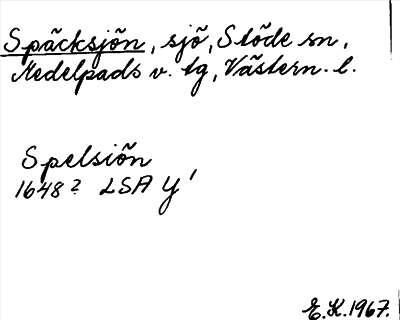 Späcksjön, sjö, Stöde sn,
Medelpads v. tg, Västern. l.
Spelsiön
1648? LSA Y'
E.K.1967.